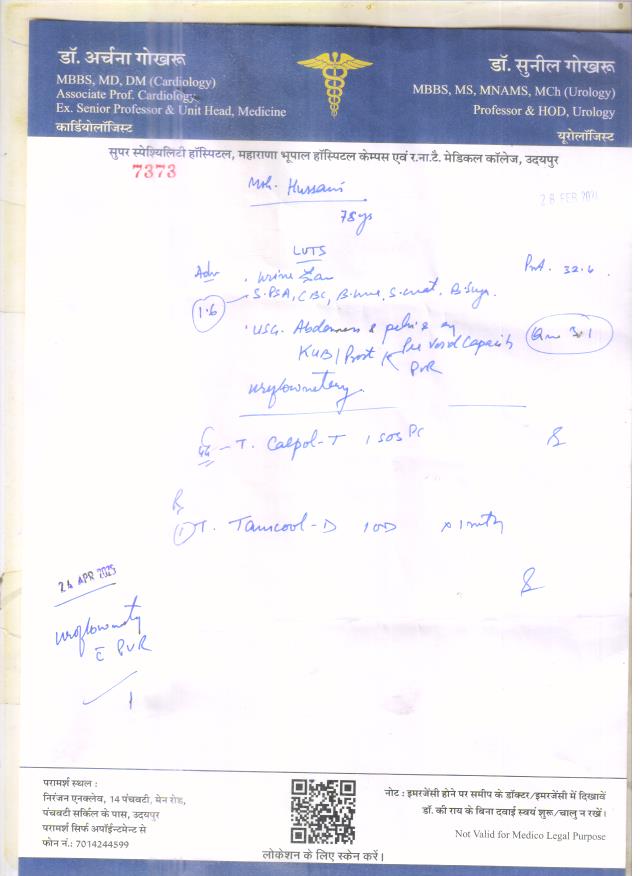 डॉ. अर्चना गोखरू
MBBS, MD, DM (Cardiology)
Associate Prof. Cardiology
Ex. Senior Professor & Unit Head, Medicine
कार्डियोलॉजिस्ट
डॉ. सुनील गोखरू
MBBS, MS, MNAMS, MCh (Urology)
Professor & HOD, Urology
यूरोलॉजिस्ट
सुपर स्पेश्यिलिटी हॉस्पिटल, महाराणा भूपाल हॉस्पिटल केम्पस एवं र.ना.टै. मेडिकल कॉलेज, उदयपुर
7373
Hussain
28 FEB
78 ys
LUTS
Adv
Urine
32.6
S. PSA, CBC, S. creat.
1.6
USG. Abdomen & pelvis
KUB/Prost Pre void Capacity
PVR
3.1
Uroflowmetery
T. Calpol-T 1 SOS PC
R
1 T. Tamcool-D 1 OD x 1 mth
24 APR 2025
Uroflowmety
c̄ PVR
परामर्श स्थल :
निरंजन एनक्लेव, 14 पंचवटी, मेन रोड,
पंचवटी सर्किल के पास, उदयपुर
परामर्श सिर्फ अपॉईन्टमेन्ट से
फोन नं.: 7014244599
लोकेशन के लिए स्केन करें।
नोट : इमरजेंसी होने पर समीप के डॉक्टर/इमरजेंसी में दिखावें
डॉ. की राय के बिना दवाई स्वयं शुरू/चालु न रखें।
Not Valid for Medico Legal Purpose